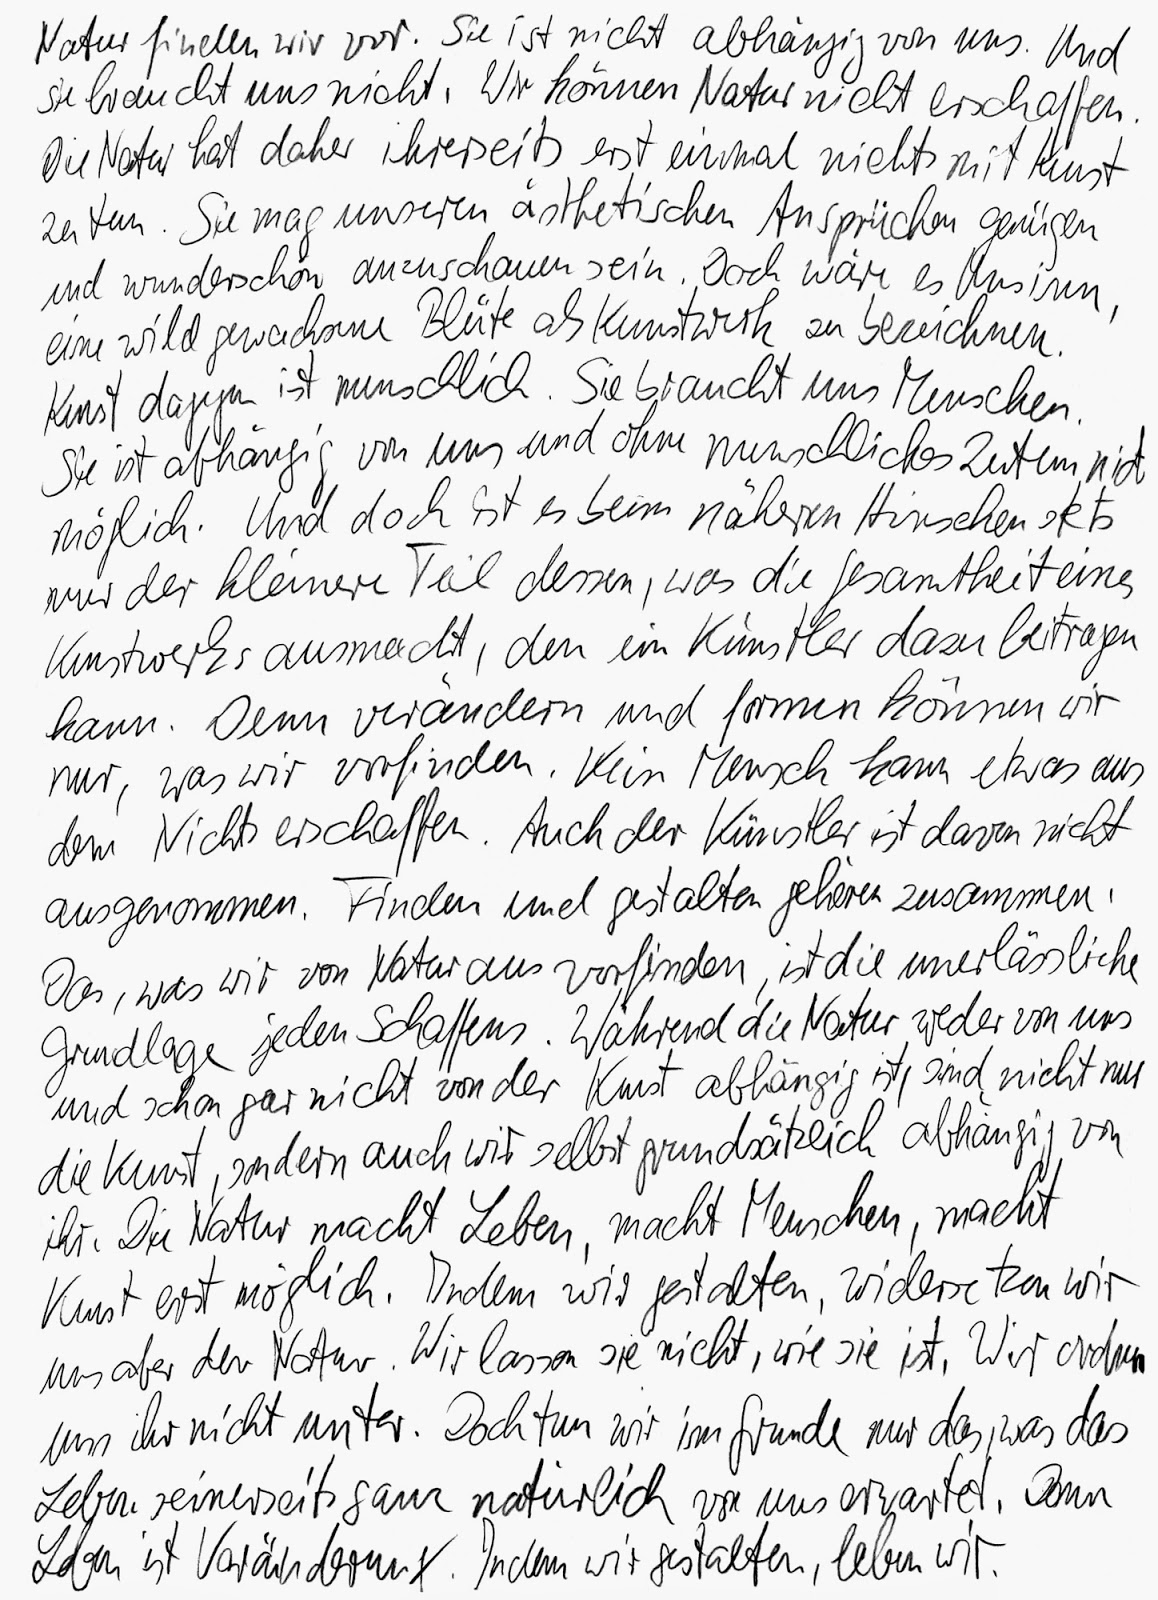 Natur finden wir vor. Sie ist nicht abhängig von uns. Und
sie braucht uns nicht. Wir können Natur nicht erschaffen.
Die Natur hat daher ihrerseits erst einmal nichts mit Kunst
zu tun. Sie mag unseren ästhetischen Ansprüchen genügen
und wunderschön anzuschauen sein. Doch wäre es Unsinn,
eine wild gewachsene Blüte als Kunstwerk zu bezeichnen.
Kunst dagegen ist menschlich. Sie braucht uns Menschen.
Sie ist abhängig von uns und ohne menschliches Zutun nicht
möglich. Und doch ist es beim näheren Hinsehen stets
nur der kleinere Teil dessen, was die Gesamtheit eines
Kunstwerks ausmacht, den ein Künstler dazu beitragen
kann. Denn verändern und formen können wir
nur, was wir vorfinden. Kein Mensch kann etwas aus
dem Nichts erschaffen. Auch der Künstler ist davon nicht
ausgenommen. Finden und gestalten gehören zusammen.
Das, was wir von Natur aus vorfinden, ist die unerlässliche
Grundlage jeden Schaffens. Während die Natur weder von uns
und schon gar nicht von der Kunst abhängig ist, sind nicht nur
die Kunst, sondern auch wir selbst grundsätzlich abhängig von
ihr. Die Natur macht Leben, macht Menschen, macht
Kunst erst möglich. Indem wir gestalten, widersetzen wir
uns aber der Natur. Wir lassen sie nicht, wie sie ist. Wir ordnen
uns ihr nicht unter. Doch tun wir im Grunde nur das, was das
Leben seinerseits ganz natürlich von uns erwartet. Denn
Leben ist Veränderung. Indem wir gestalten, leben wir.